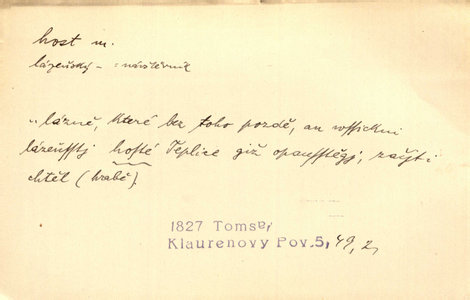 host m.
lázeňský – = návštěvník
„lázně, které bez toho pozdě, an wssickni
lázeňsstj hosté Teplice giž opausstěgj, zaujti
chtěl (hrabě).
1827 Tomsa,
Klaurenovy Pov.5, 49, 2,